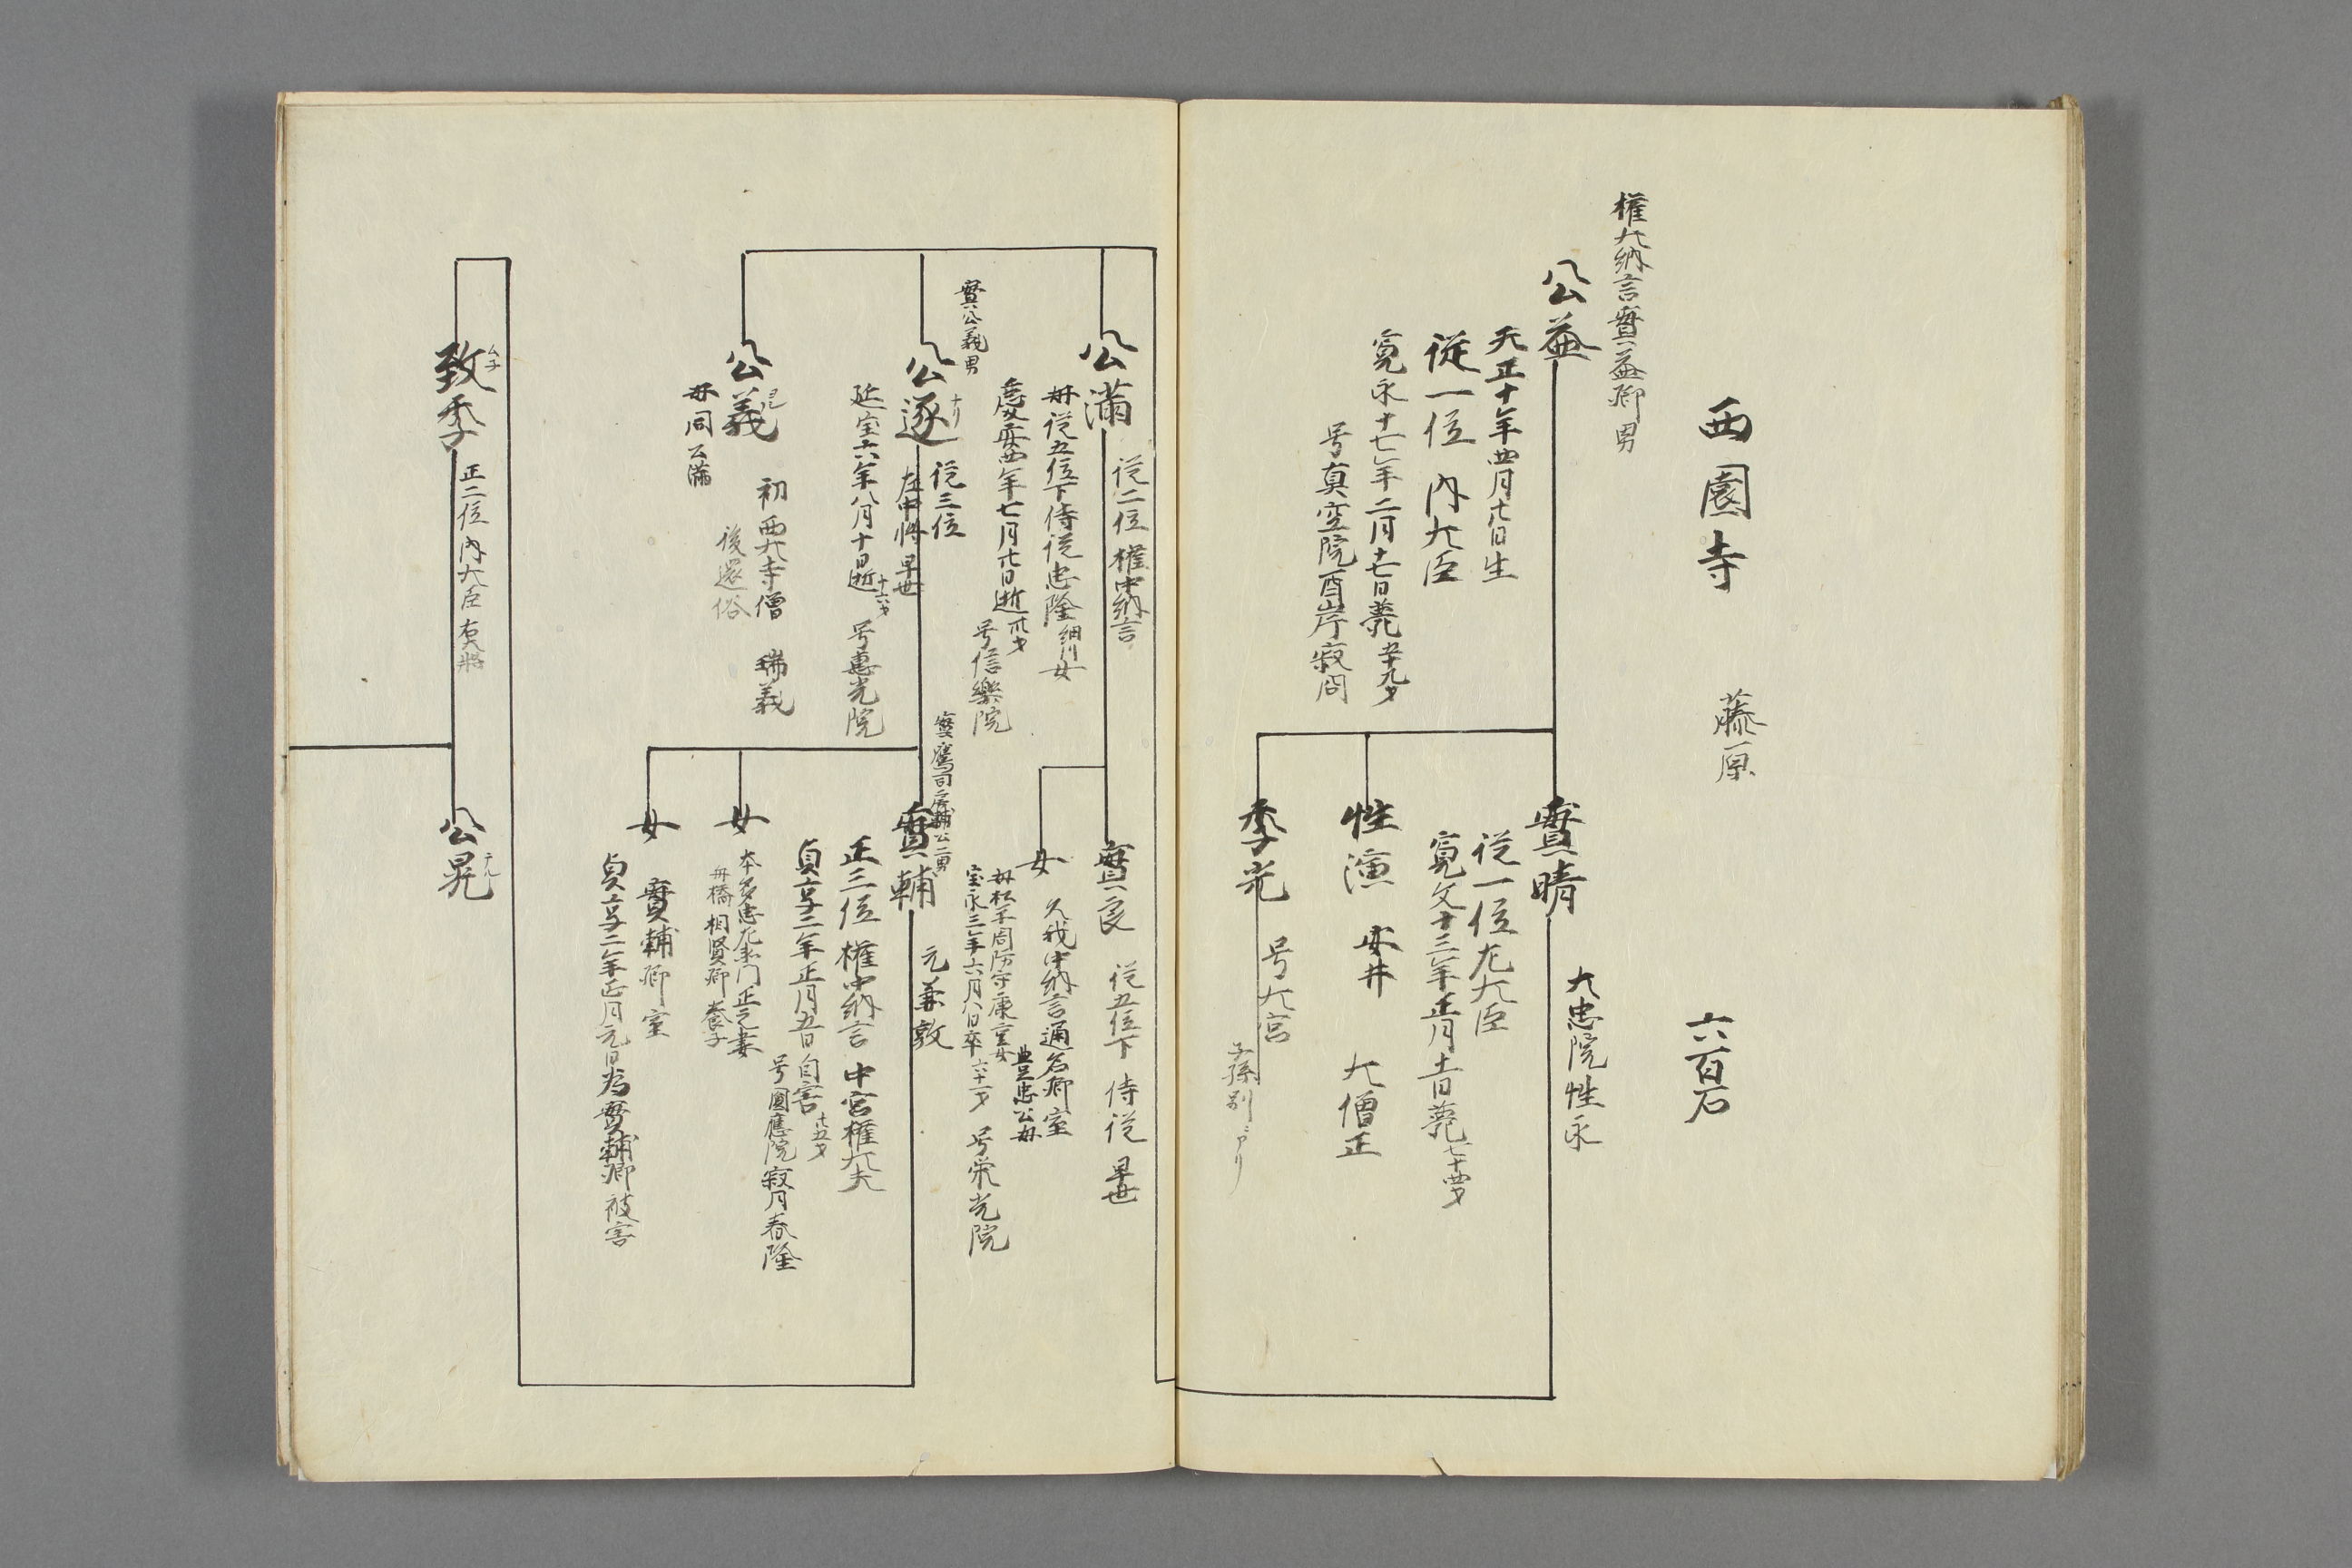 西園寺 藤原 六百石
權大納言實益卿男
公益
天正十年四月廿日生
従一位 内大臣
寛永十七年二月十七日薨 五十九才
号真空院酉岸寂問
實晴
大忠院性永
従一位左大臣
寛文十三年正月十一日薨 七十四才
性演 安井 大僧正
季光 号大宮
子孫別ニアリ
公滿
従二位 權中納言
母従五位下侍従忠隆 細川 女
慶安四年七月廿日逝 卅才
号信樂院
實良 従五位下 侍従 早世
女 久我中納言通名卿室
豊忠公母
母松平周防守康重女
宝永三年六月八日卒 六十一才 号栄光院
實公義男
公遂 ナリ
従三位
左中将 早世
延宝六年八月十日逝 十六才 号恵光院
實鷹司房輔公二男
實輔 元兼敦
正三位 權中納言 中宮權大夫
貞享二年正月五日自害 廿五才
号圓應院寂月春隆
女 本多忠左衛門正之妻
母橋 相賢卿養子
女 實輔卿室
貞享二年正月元日為實輔卿被害
公義 ヨシ
初西大寺僧 瑞義
後還俗
母同公滿
致季 ムネ
正二位 内大臣 右大将
公晃 テル